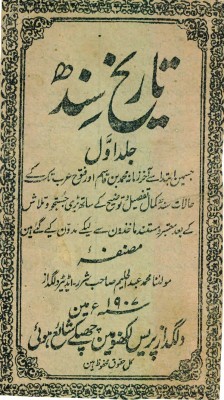 تاریخ سندھ
جلد اوّل
جسمیں ابتدا سے آخر زمانہ محمد بن قاسم اور فتح عرب تک کے
حالات سندھ کمال تفصیل و توضیح کے ساتھ بڑی جستجو و تلاش
کے بعد معتبر و مستند ماخذون سے لیکے مدون کیے گئے ہین
مصنفہ
مولانا محمد عبدالحلیم صاحب شرر۔ اڈیٹر دلگداز
سنہ ۱۹۰۷ء مین
دلگداز پریس لکھنؤ مین چھپکے شائع ہوئی
کل حقوق محفوظ ہین